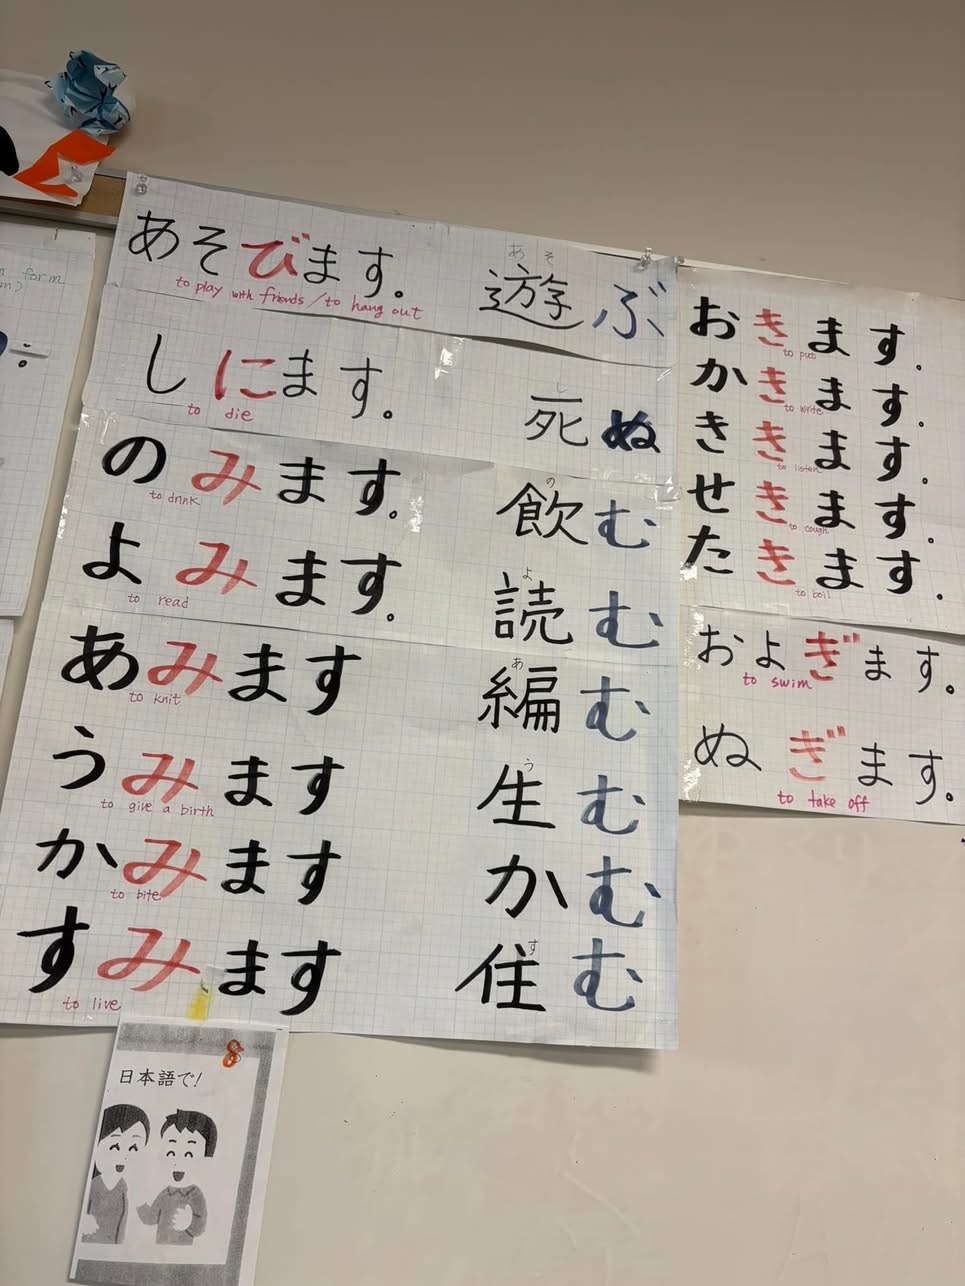 form
あそびます。
to play with friends/to hang out
あそ
遊ぶ
しにます。
to die
し
死ぬ
のみます。
to drink
の
飲む
よみます。
to read
よ
読む
あみます
to knit
あ
編む
うみます
to give a birth
う
生む
かみます
to bite
かむ
すみます
to live
す
住む
おきます。
to put
かきます。
to write
ききます。
to listen
せきます。
to cough
たきます。
to boil
およぎます。
to swim
ぬぎます。
to take off
8
日本語で!